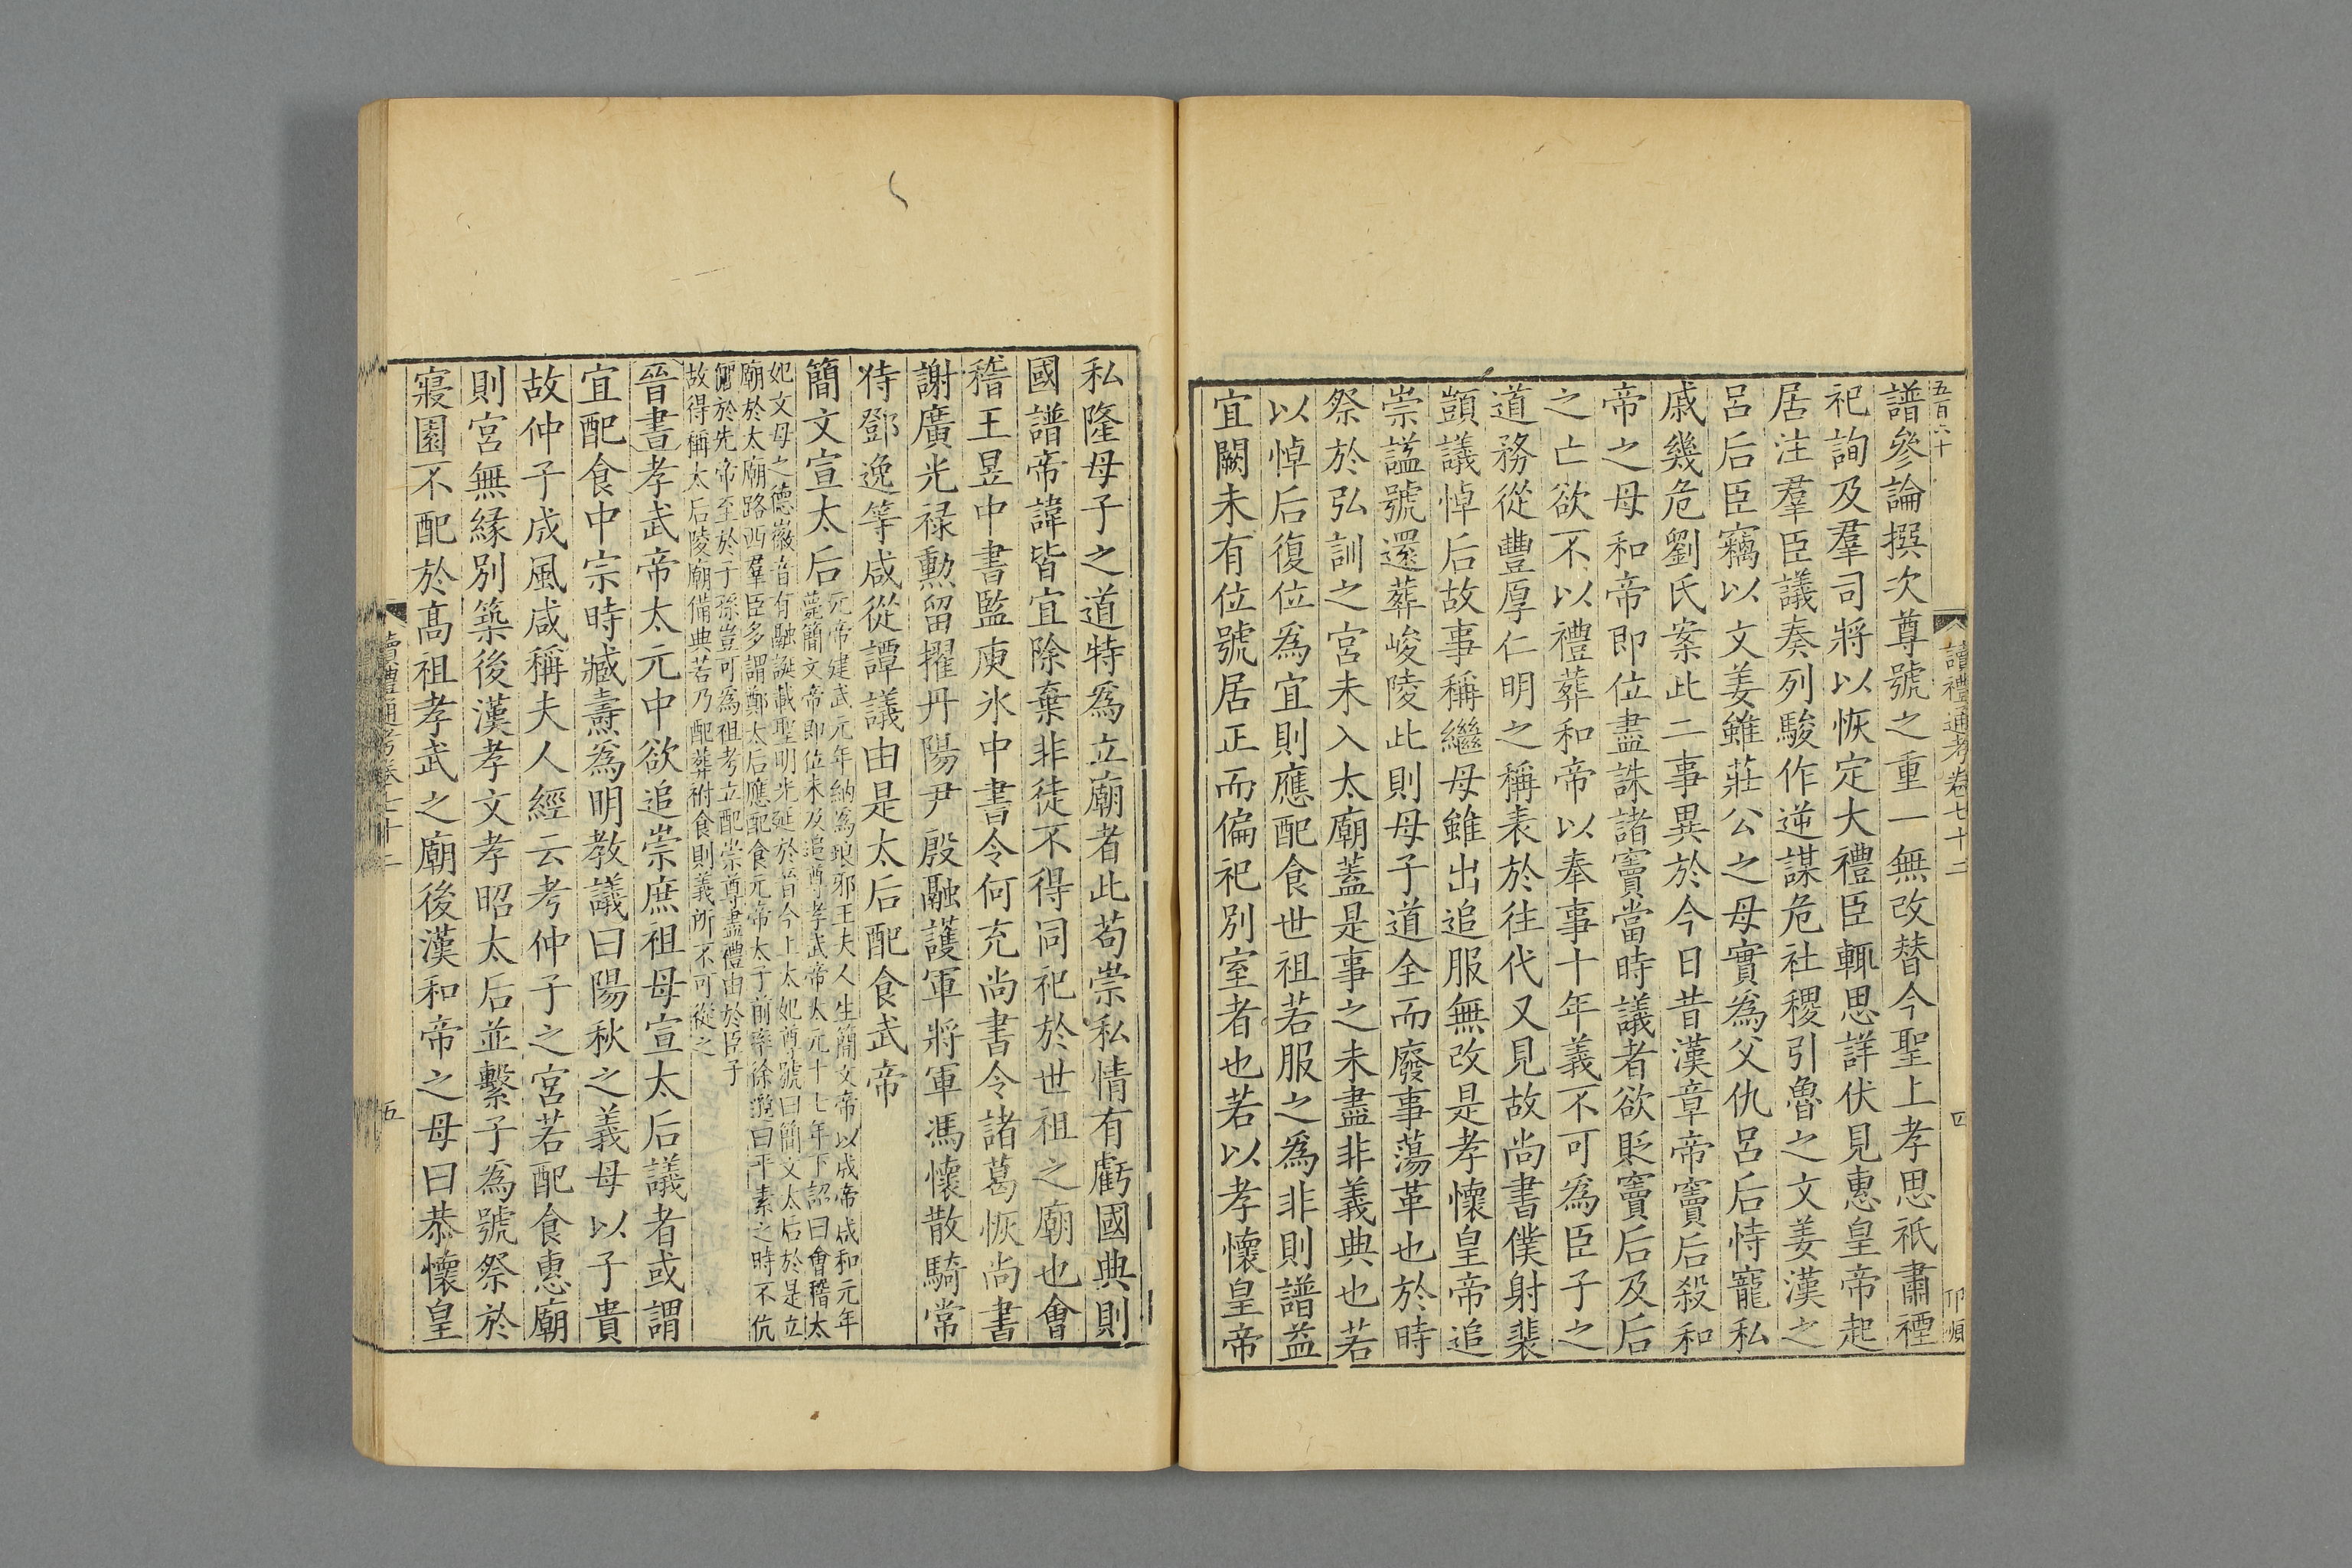 五百六十
讀禮通考卷七十二
四
譜參論撰次尊號之重一無改替今聖上孝思祇肅禋
祀詢及羣司將以恢定大禮臣輒思詳伏見惠皇帝起
居注羣臣議奏列駿作逆謀危社稷引魯之文姜漢之
呂后臣竊以文姜雖莊公之母實爲父仇呂后恃寵私
戚幾危劉氏案此二事異於今日昔漢章帝竇后殺和
帝之母和帝即位盡誅諸竇當時議者欲貶竇后及后
之亡欲不以禮葬和帝以奉事十年義不可爲臣子之
道務從豐厚仁明之稱表於往代又見故尚書僕射裴
頠議悼后故事稱繼母雖出追服無改是孝懷皇帝追
崇謚號還葬峻陵此則母子道全而廢事蕩革也於時
祭於弘訓之宮未入太廟蓋是事之未盡非義典也若
以悼后復位爲宜則應配食世祖若服之爲非則譜益
宜闕未有位號居正而偏祀別室者也若以孝懷皇帝
私隆母子之道特爲立廟者此苟崇私情有虧國典則
國譜帝諱皆宜除棄非徒不得同祀於世祖之廟也會
稽王昱中書監庾氷中書令何充尚書令諸葛恢尚書
謝廣光禄勳留擢丹陽尹殷融護軍將軍馮懷散騎常
侍鄧逸等咸從譚議由是太后配食武帝
簡文宣太后元帝建武元年納爲琅邪王夫人生簡文帝以成帝咸和元年
薨簡文帝即位未及追尊孝武帝太元十七年下詔曰會稽太
妃文母之德徽音有融誕載聖明光延於晉今上太妃尊號曰簡文太后於是立
廟於太廟路西羣臣多謂鄭太后應配食元帝太子前率徐邈曰平素之時不伉
儷於先帝至於子孫豈可爲祖考立配崇尊盡禮由於臣子
故得稱太后陵廟備典若乃配葬祔食則義所不可從之
晉書孝武帝太元中欲追崇庶祖母宣太后議者或謂
宜配食中宗時臧燾爲明教議曰陽秋之義母以子貴
故仲子成風咸稱夫人經云考仲子之宮若配食惠廟
則宮無緣別築後漢孝文孝昭太后並繫子爲號祭於
寢園不配於高祖孝武之廟後漢和帝之母曰恭懷皇
讀禮通考卷七十二
五